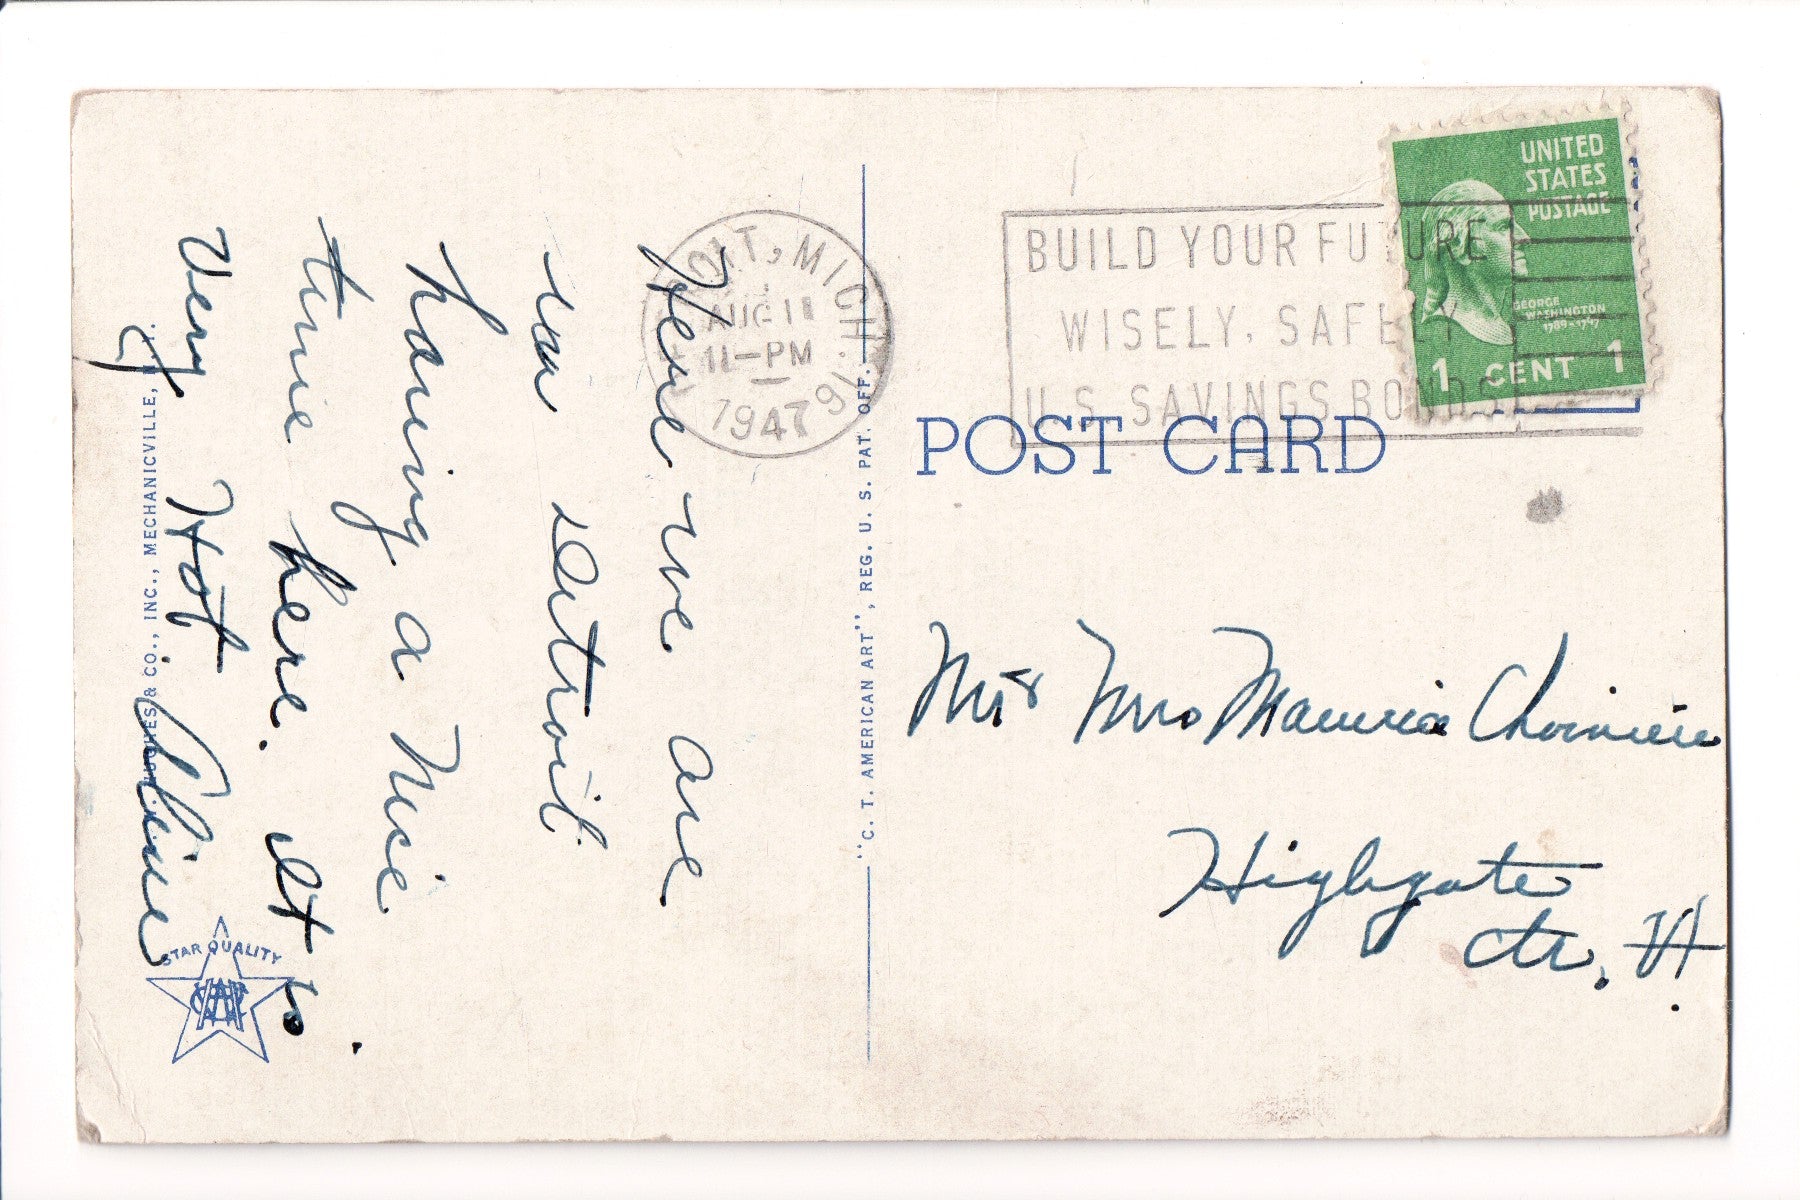 Here we are
in Detroit
having a Nice
time here. It is
Very Hot.
Aline
HUGHES & CO., INC., MECHANICVILLE, N.Y.
STAR QUALITY
"C. T. AMERICAN ART", REG. U. S. PAT. OFF.
DETROIT, MICH.
AUG 11
11-PM
1947
16
BUILD YOUR FUTURE
WISELY, SAFELY
U.S. SAVINGS BONDS
UNITED
STATES
POSTAGE
GEORGE
WASHINGTON
1789-1797
1 CENT 1
POST CARD
Mr & Mrs Maurice Choiniere
Highgate
Ctr. Vt.